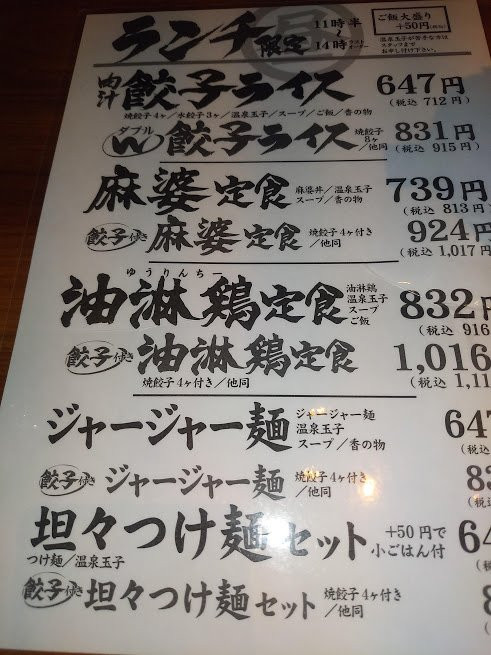 ランチ限定 11時半～14時ラストオーダー
ご飯大盛り
+50円(税抜)
温泉玉子が苦手な方は
スタッフまで
お申し付け下さい。
肉汁餃子ライス 647円
焼餃子4ヶ/水餃子3ヶ/温泉玉子/スープ/ご飯/香の物 (税込 712円)
ダブル
W餃子ライス 焼餃子8ヶ/他同 831円
(税込 915円)
麻婆定食 麻婆丼/温泉玉子 スープ/香の物 739円
(税込 813円)
餃子付き 麻婆定食 焼餃子4ヶ付き/他同 924円
(税込 1,017円
ゆうりんちー
油淋鶏定食 油淋鶏 温泉玉子 スープ ご飯 832円
(税込 916
餃子付き 油淋鶏定食 1,016
焼餃子4ヶ付き/他同 (税込 1,11
ジャージャー麺 ジャージャー麺 温泉玉子 スープ/香の物 647
(税込
餃子付き ジャージャー麺 焼餃子4ヶ付き/他同
(税
坦々つけ麺セット +50円で小ごはん付
つけ麺/温泉玉子
餃子付き 坦々つけ麺セット 焼餃子4ヶ付き/他同